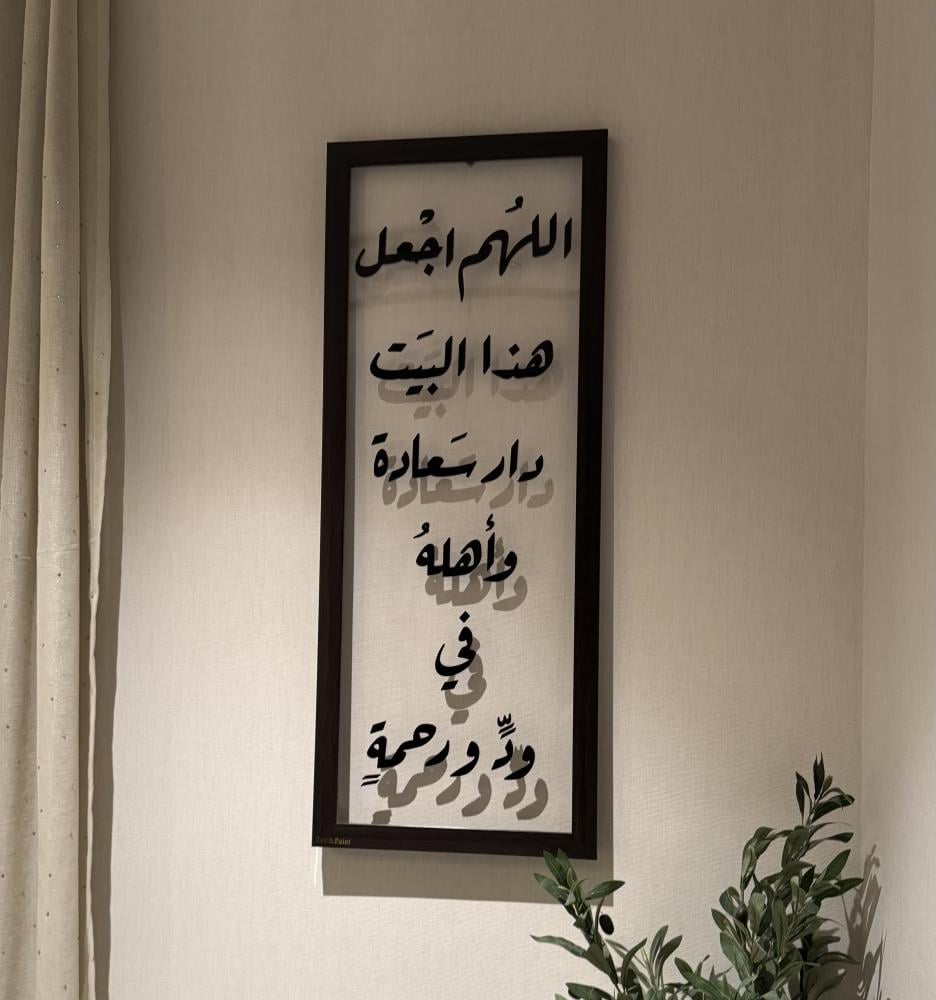 اللهُم اجْعل
هذا البَيت
دار سَعادة
وأهلهُ
في
ودٍّ ورحمةٍ